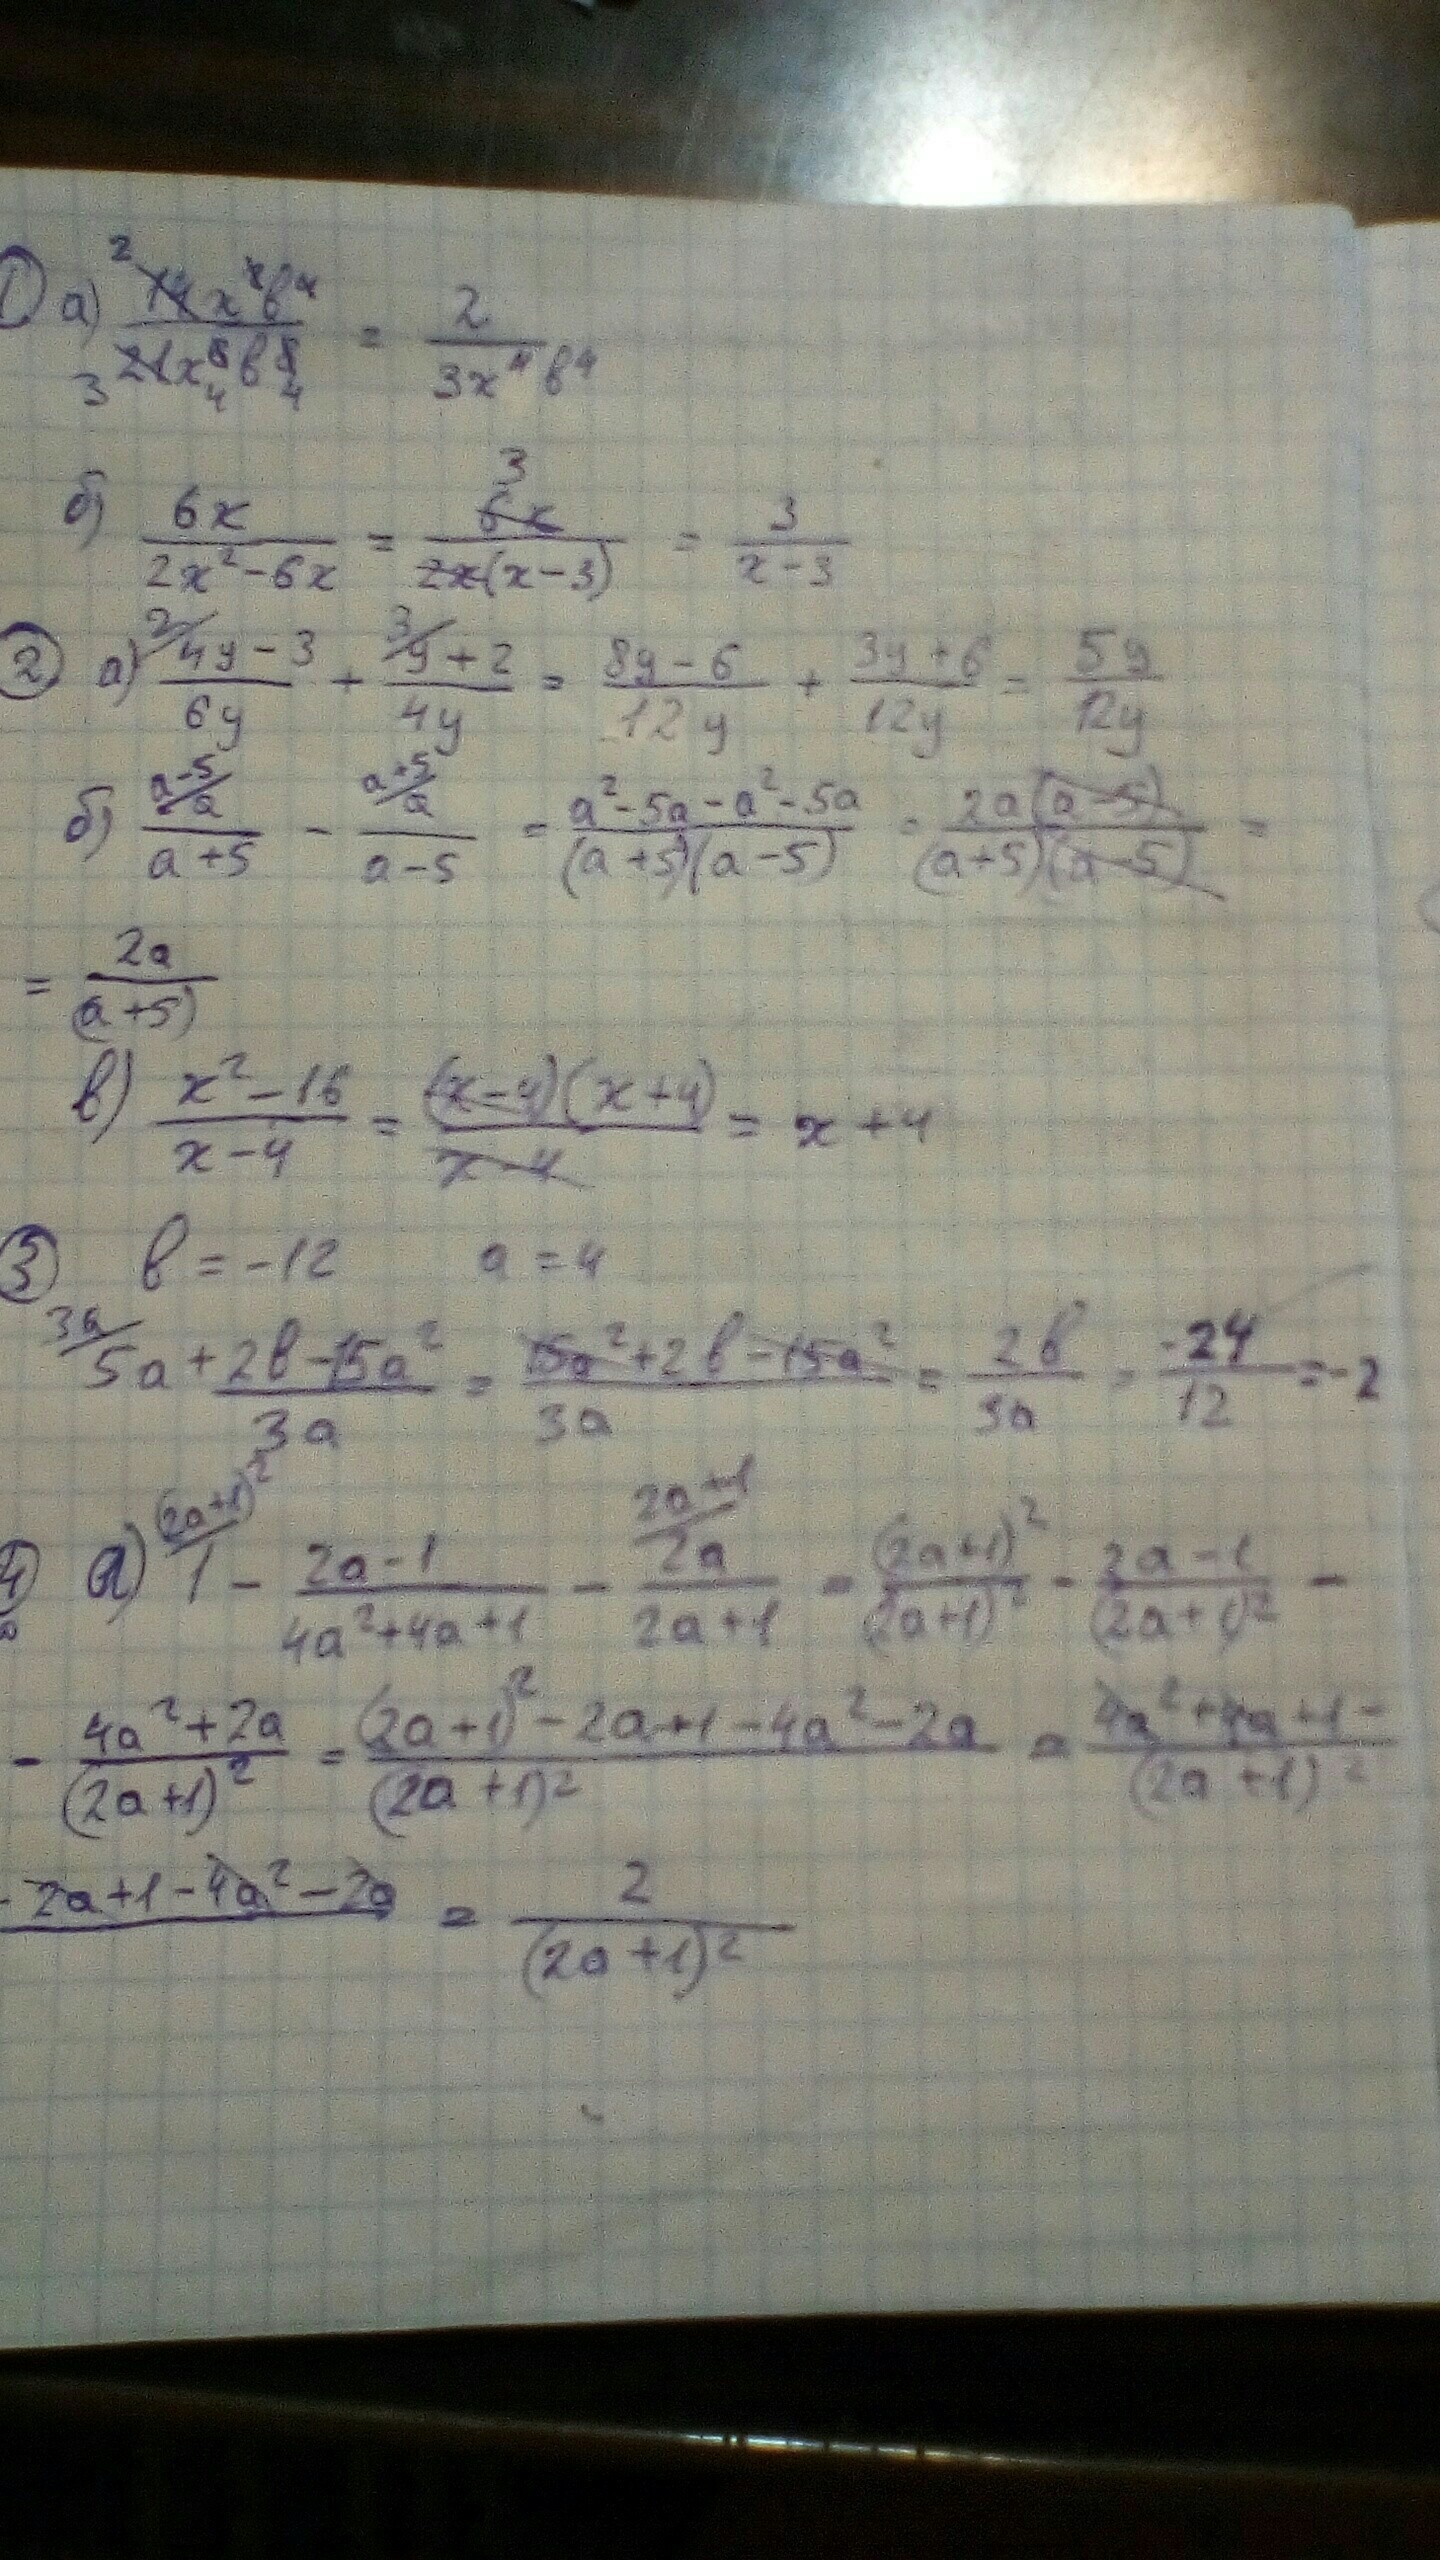 1 а) ²14x⁴b⁴/₃21x⁸b⁸ = 2/3x⁴b⁴
б) 6x/2x²-6x = 6x/2x(x-3) = 3/x-3
2 а) 4y-3/6y + y+2/4y = 8y-6/12y + 3y+6/12y = 5y/12y
б) a/a+5 - a/a-5 = a²-5a-a²-5a/(a+5)(a-5) = 2a(a-5)/(a+5)(a-5) =
= 2a/(a+5)
в) x²-16/x-4 = (x-4)(x+4)/x-4 = x+4
3 b = -12 a = 4
5a + 2b-15a²/3a = 15a²+2b-15a²/3a = 2b/3a = -24/12 = -2
4 а) 1 - 2a-1/4a²+4a+1 - 2a/2a+1 = (2a+1)²/(2a+1)² - 2a-1/(2a+1)² -
- 4a²+2a/(2a+1)² = (2a+1)²-2a+1-4a²-2a/(2a+1)² = 4a²+4a+1-/(2a+1)²
-2a+1-4a²-2a = 2/(2a+1)²